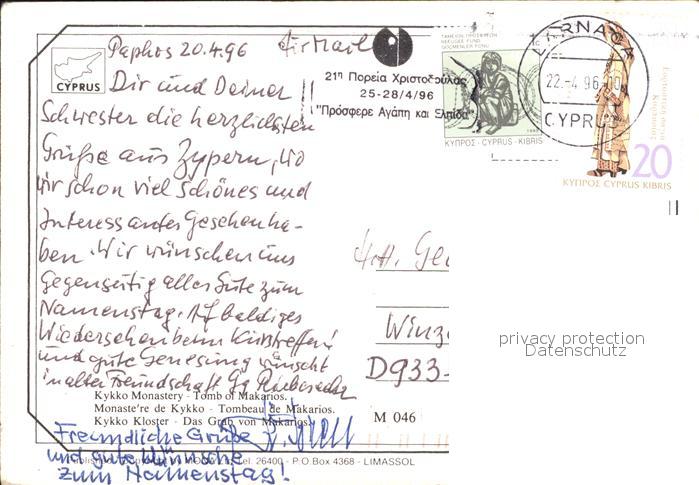 Paphos 20.4.96 Air Mail
CYPRUS
Dir und Deiner
Schwester die herzlichsten
Grüße aus Zypern, wo
wir schon viel Schönes und
Interessantes Gesehen ha-
ben. Wir wünschen uns
Gegenseitig alles Gute zum
Namenstag. Auf baldiges
Wiedersehen beim Kurstreffen!
und gute Genesung wünscht
in alter Freundschaft Gg
Kykko Monastery - Tomb of Makarios.
Monaste're de Kykko - Tombeau de Makarios.
Kykko Kloster - Das Grab von Makarios.
Freundliche Grüße
und gute Wünsche
zum Namenstag!
Tel. 26400 - P.O.Box 4368 - LIMASSOL
M 046
21η Πορεία Χριστοδούλας
25-28/4/96
"Πρόσφερε Αγάπη και Ελπίδα"
ΤΑΜΕΙΟΝ ΠΡΟΣΦΥΓΩΝ
REFUGEE FUND
GÖÇMENLER FONU
ΚΥΠΡΟΣ - CYPRUS - KIBRIS
LARNACA
22.-4.96-10
CYPRUS
20
ΚΥΠΡΟΣ CYPRUS KIBRIS
Winz
D933
privacy protection
Datenschutz